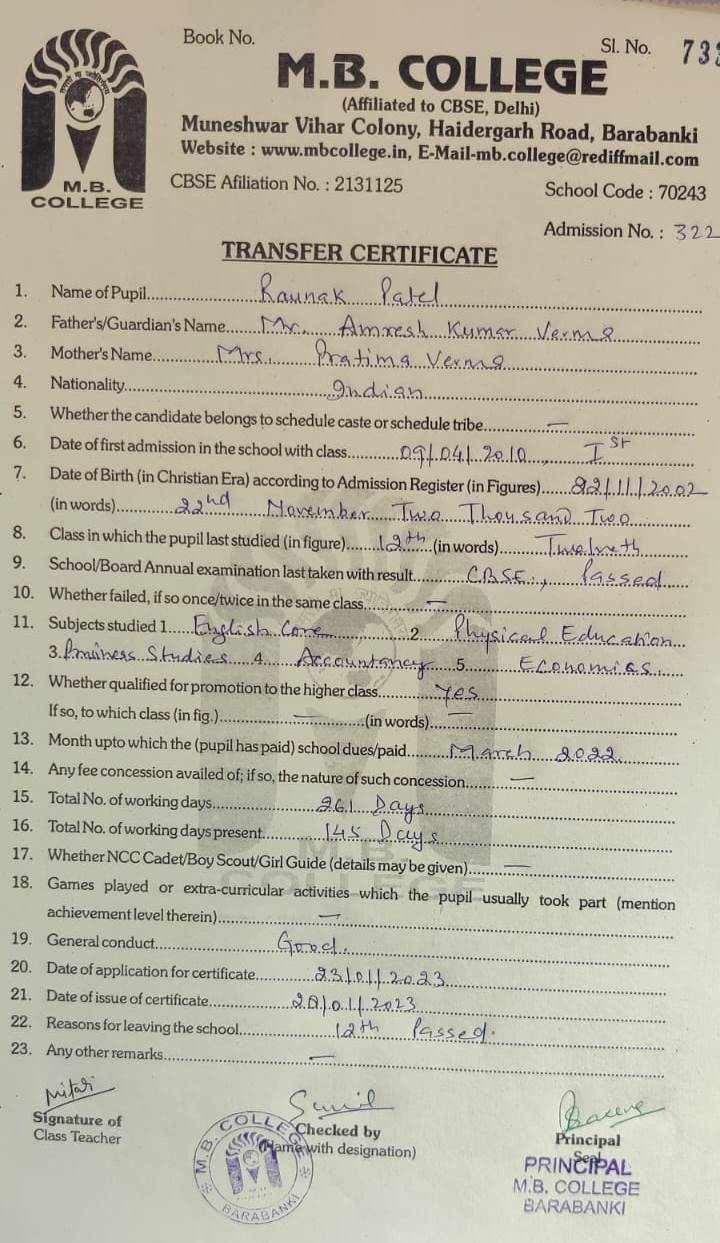 Book No.
Sl. No. 733
M.B. COLLEGE
(Affiliated to CBSE, Delhi)
Muneshwar Vihar Colony, Haidergarh Road, Barabanki
Website : www.mbcollege.in, E-Mail-mb.college@rediffmail.com
M.B.
COLLEGE
CBSE Afiliation No. : 2131125
School Code : 70243
Admission No. : 322
TRANSFER CERTIFICATE
1. Name of Pupil Raunak Patel
2. Father's/Guardian's Name Mr. Amresh Kumar Verma
3. Mother's Name Mrs. Pratima Verma
4. Nationality Indian
5. Whether the candidate belongs to schedule caste or schedule tribe —
6. Date of first admission in the school with class 09/04/2010, Ist
7. Date of Birth (in Christian Era) according to Admission Register (in Figures) 22/11/2002
(in words) 22nd November Two Thousand Two
8. Class in which the pupil last studied (in figure) 12th (in words) Twelveth
9. School/Board Annual examination last taken with result CBSE, Passed
10. Whether failed, if so once/twice in the same class —
11. Subjects studied 1 English Core 2 Physical Education
3. Business Studies 4. Accountancy 5. Economics.
12. Whether qualified for promotion to the higher class Yes
If so, to which class (in fig.) — (in words) —
13. Month upto which the (pupil has paid) school dues/paid March 2022
14. Any fee concession availed of; if so, the nature of such concession —
15. Total No. of working days 261 Days
16. Total No. of working days present 145 Days
17. Whether NCC Cadet/Boy Scout/Girl Guide (details may be given) —
18. Games played or extra-curricular activities which the pupil usually took part (mention
achievement level therein) —
19. General conduct Good.
20. Date of application for certificate 23/01/2023
21. Date of issue of certificate 28/01/2023
22. Reasons for leaving the school 12th Passed.
23. Any other remarks —
Signature of
Class Teacher
Sunil
Checked by
(Name with designation)
Principal
Seal
PRINCIPAL
M.B. COLLEGE
BARABANKI
M.B. COLLEGE
BARABANKI